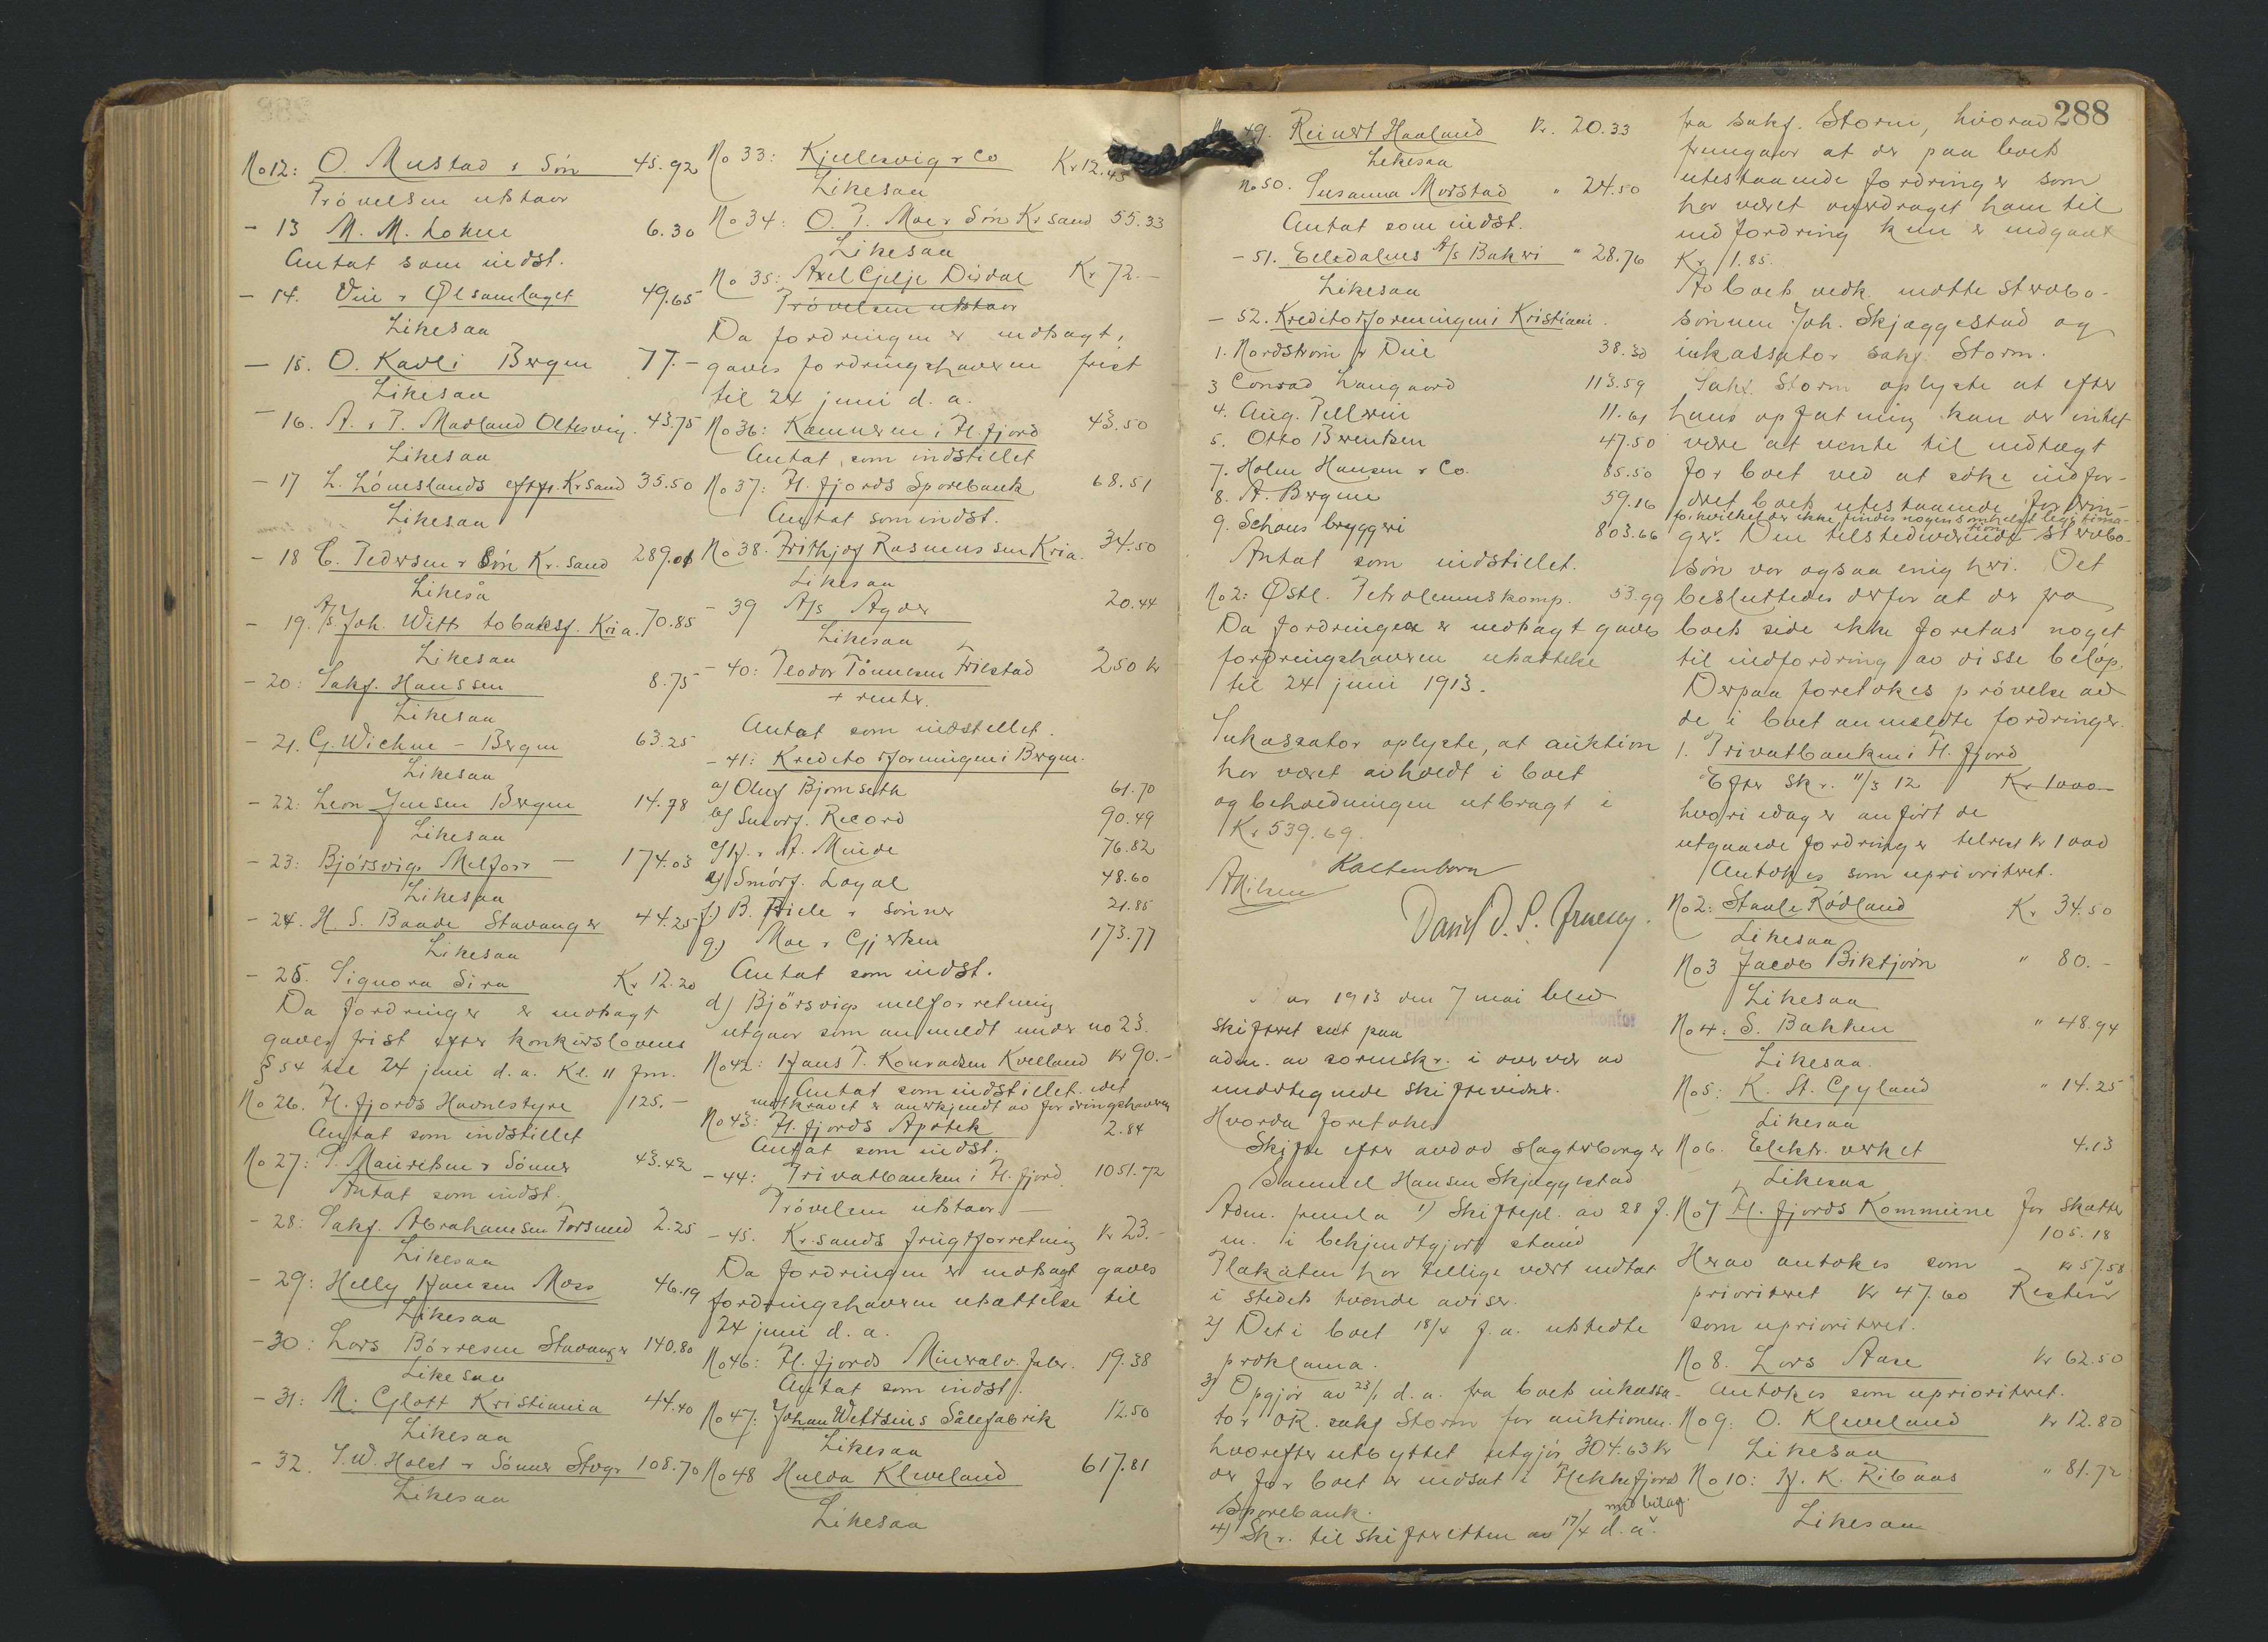 No 12: O. Mustad & Søn 45.92
Prøvelsen utstaar
- 13 M. M. Løken 6.30
Antat som indst.
- 14. Vin & Ølsamlaget 49.65
Likesaa
- 15. O. Kavli Bergen 77.-
Likesaa
- 16. A. & T. Madland Oltesvig. 43.75
Likesaa
- 17 L. Løneslands eftf. Kr.sand 35.50
Likesaa
- 18 C. Pedersen & Søn Kr.sand 289.01
Likeså
- 19. A/S Joh. Witts tobaksf. Kria. 70.85
Likesaa
- 20: Sakf. Hanssen 8.75
Likesaa
- 21. G. Wichne - Bergen 63.25
Likesaa
- 22: Leon Jensen Bergen 14.78
Likesaa
- 23: Bjørsvigs Melforr - 174.03
Likesaa
- 24. H. S. Baade Stavanger 44.25
Likesaa
- 25. Signora Sira Kr 12.20
Da fordringer er motsagt
gaves frist efter konkurslovens
§ 54 til 24 juni d. a. Kl. 11 fm.
No 26. Fl.fjords Havnestyre 125.-
Antat som indstillet
No 27: S. Mauritsen & Sønner 43.42
Antat som indst.
- 28: Sakf. Abrahamsen Farsund 2.25
Likesaa
- 29: Helly Hansen Moss 46.19
Likesaa
- 30: Lars Børresen Stavanger 140.80
Likesaa
- 31: M. Glott Kristiania 44.40
Likesaa
- 32. T. W. Holst & Sønner Stvgr 108.70
Likesaa
No 33: Kjellesvig & Co Kr 12.45
Likesaa
No 34: O. T. Moe & Søn Kr.sand 55.33
Likesaa
No 35: Axel Gjelje Disdal Kr 72.-
Prøvelsen utstaar
Da fordringen er motsagt,
gaves fordringshaveren frist
til 24 juni d. a.
No 36: Kæmneren i Fl.fjord 43.50
Antat som indstillet
No 37: Fl.fjords Sparebank 68.51
Antat som indst.
No 38. Frithjof Rasmussen Kria. 34.50
Likesaa
- 39 A/s Agder 20.44
Likesaa
- 40: Teodor Tønnesen Frilstad 250 kr
+ renter.
Antat som indstillet.
- 41: Kreditorforeningen i Bergen.
a) Oluf Bjørnseth 61.70
b) Smørf. Record 90.49
c) Hj. & A. Minde 76.82
e) Smørf. Loyal 48.60
f) B. Friele & Sønner 21.85
g) Moe & Gjerken 173.77
Antat som indst.
d) Bjørsvigs melforretning
utgaar som anmeldt under no 23.
No 42: Hans T. Konradsen Kvelland Kr 90.-
Antat som indstillet. idet
motkravet er anerkjendt av fordringshaveren
No 43: Fl.fjords Apotek 2.84
Antat som indst.
- 44: Privatbanken i Fl.fjord 1051.72
Prøvelsen utstaar -
- 45. Kr.sands frugtforretning Kr 23.-
Da fordringen er motsagt gaves
fordringshaveren utsættelse til
24 juni d. a.
No 46: Fl.fjords Mineralv. fabr. 19.38
Antat som indst.
No 47: Johan Wettsius Sålefabrik 12.50
Likesaa
No 48 Hulda Kleveland 617.81
Likesaa
288
No 49. Reinert Haaland Kr. 20.33
Likesaa
No 50. Susanna Morstad " 24.50
Antat som indst.
- 51. Eiledalens A/s Bakeri " 28.76
Likesaa
- 52. Kreditorforeningen i Kristiani.
1. Nordstrøm & Due 38.30
3 Conrad Langaard 113.59
4. Aug. Pellerin 11.61
5. Otto Berentsen 47.50
7. Holm Hansen & Co. 85.50
8. A. Bergene 59.16
9. Schous bryggeri 803.66
Antat som indstillet.
No 2: Østl. Petroleumskomp. 53.99
Da fordringen er motsagt gaves
fordringshaveren utsættelse
til 24 juni 1913.
Inkassator oplyste, at auktion
har været avholdt i boet
og beholdningen utbragt i
Kr 539.69.
Kaltenborn
A Nilsen
David D. S.
Aar 1913 den 7 mai blev
skifteret sat paa
adm. av sorenskr. i overvær av
undertegnede skiftevidner.
Hvorda foretokes
Skifte efter avdød slagterborger
Samuel Hansen Skjæggestad
Adm. fremla 1) Skiftepl. av 28 f.
m. i bekjendtgjort stand
Plakaten har tillige vært indtat
i stedets tvende aviser.
2) Det i boet 18/4 f. a. utstedte
proklama.
3) Opgjør av 23/1 d. a. fra boets inkassa-
tor OR. sakf Storm for auktionen.
hvorefter utbyttet utgjør 304.63 kr
der for boet er indsat i Flekkefjord
Sparebank.
4) Skr. til skifteretten av 17/4 d. a. med bilag.
fra sakf. Storm, hvorav
fremgaar at der paa boets
utestaaende fordringer som
har været overdraget ham til
indfordring kun er indgaat
Kr 11.85.
Av boets vedk. møtte stervbo-
sønnen Joh. Skjæggestad og
inkassator sakf. Storm.
Sakf. Storm oplyste at efter
hans opfatning kan der intet
være at vente til indtægt
for boet ved at søke indfor-
dret boets utestaaende fordrin-
for hvilket der ikke findes nogensomhelst legitima-
tion
ger. Den tilstedeværende stervbo-
søn var ogsaa enig heri. Det
besluttedes derfor at der fra
boets side ikke foretas noget
til indfordring av disse beløp.
Derpaa foretokes prøvelse av
de i boet anmeldte fordringer.
1. Privatbanken i Fl.fjord
Efter skr. 11/3 12 Kr 1000
hvori idag er anført de
utgaaede fordringer tilrest kr 1000
Antokes som uprioritert.
No 2: Staale Rødland Kr 34.50
Likesaa
No 3 Jacob Biktjørn " 80.-
Likesaa
No 4: S. Bakken " 48.94
Likesaa.
No 5: K. St. Gyland " 14.25
Likesaa
No 6. Elektr. verket 4.13
Likesaa
No 7 Fl.fjords Kommune for skatter
105.18
Herav antokes som kr 57.58
prioritert Kr 47.60 Resten
som uprioritert.
No 8. Lars Aase Kr 62.50
Antokes som uprioritert.
No 9: O. Kleveland Kr 12.80
Likesaa
No 10: Hj. K. Ribaas " 81.72
Likesaa